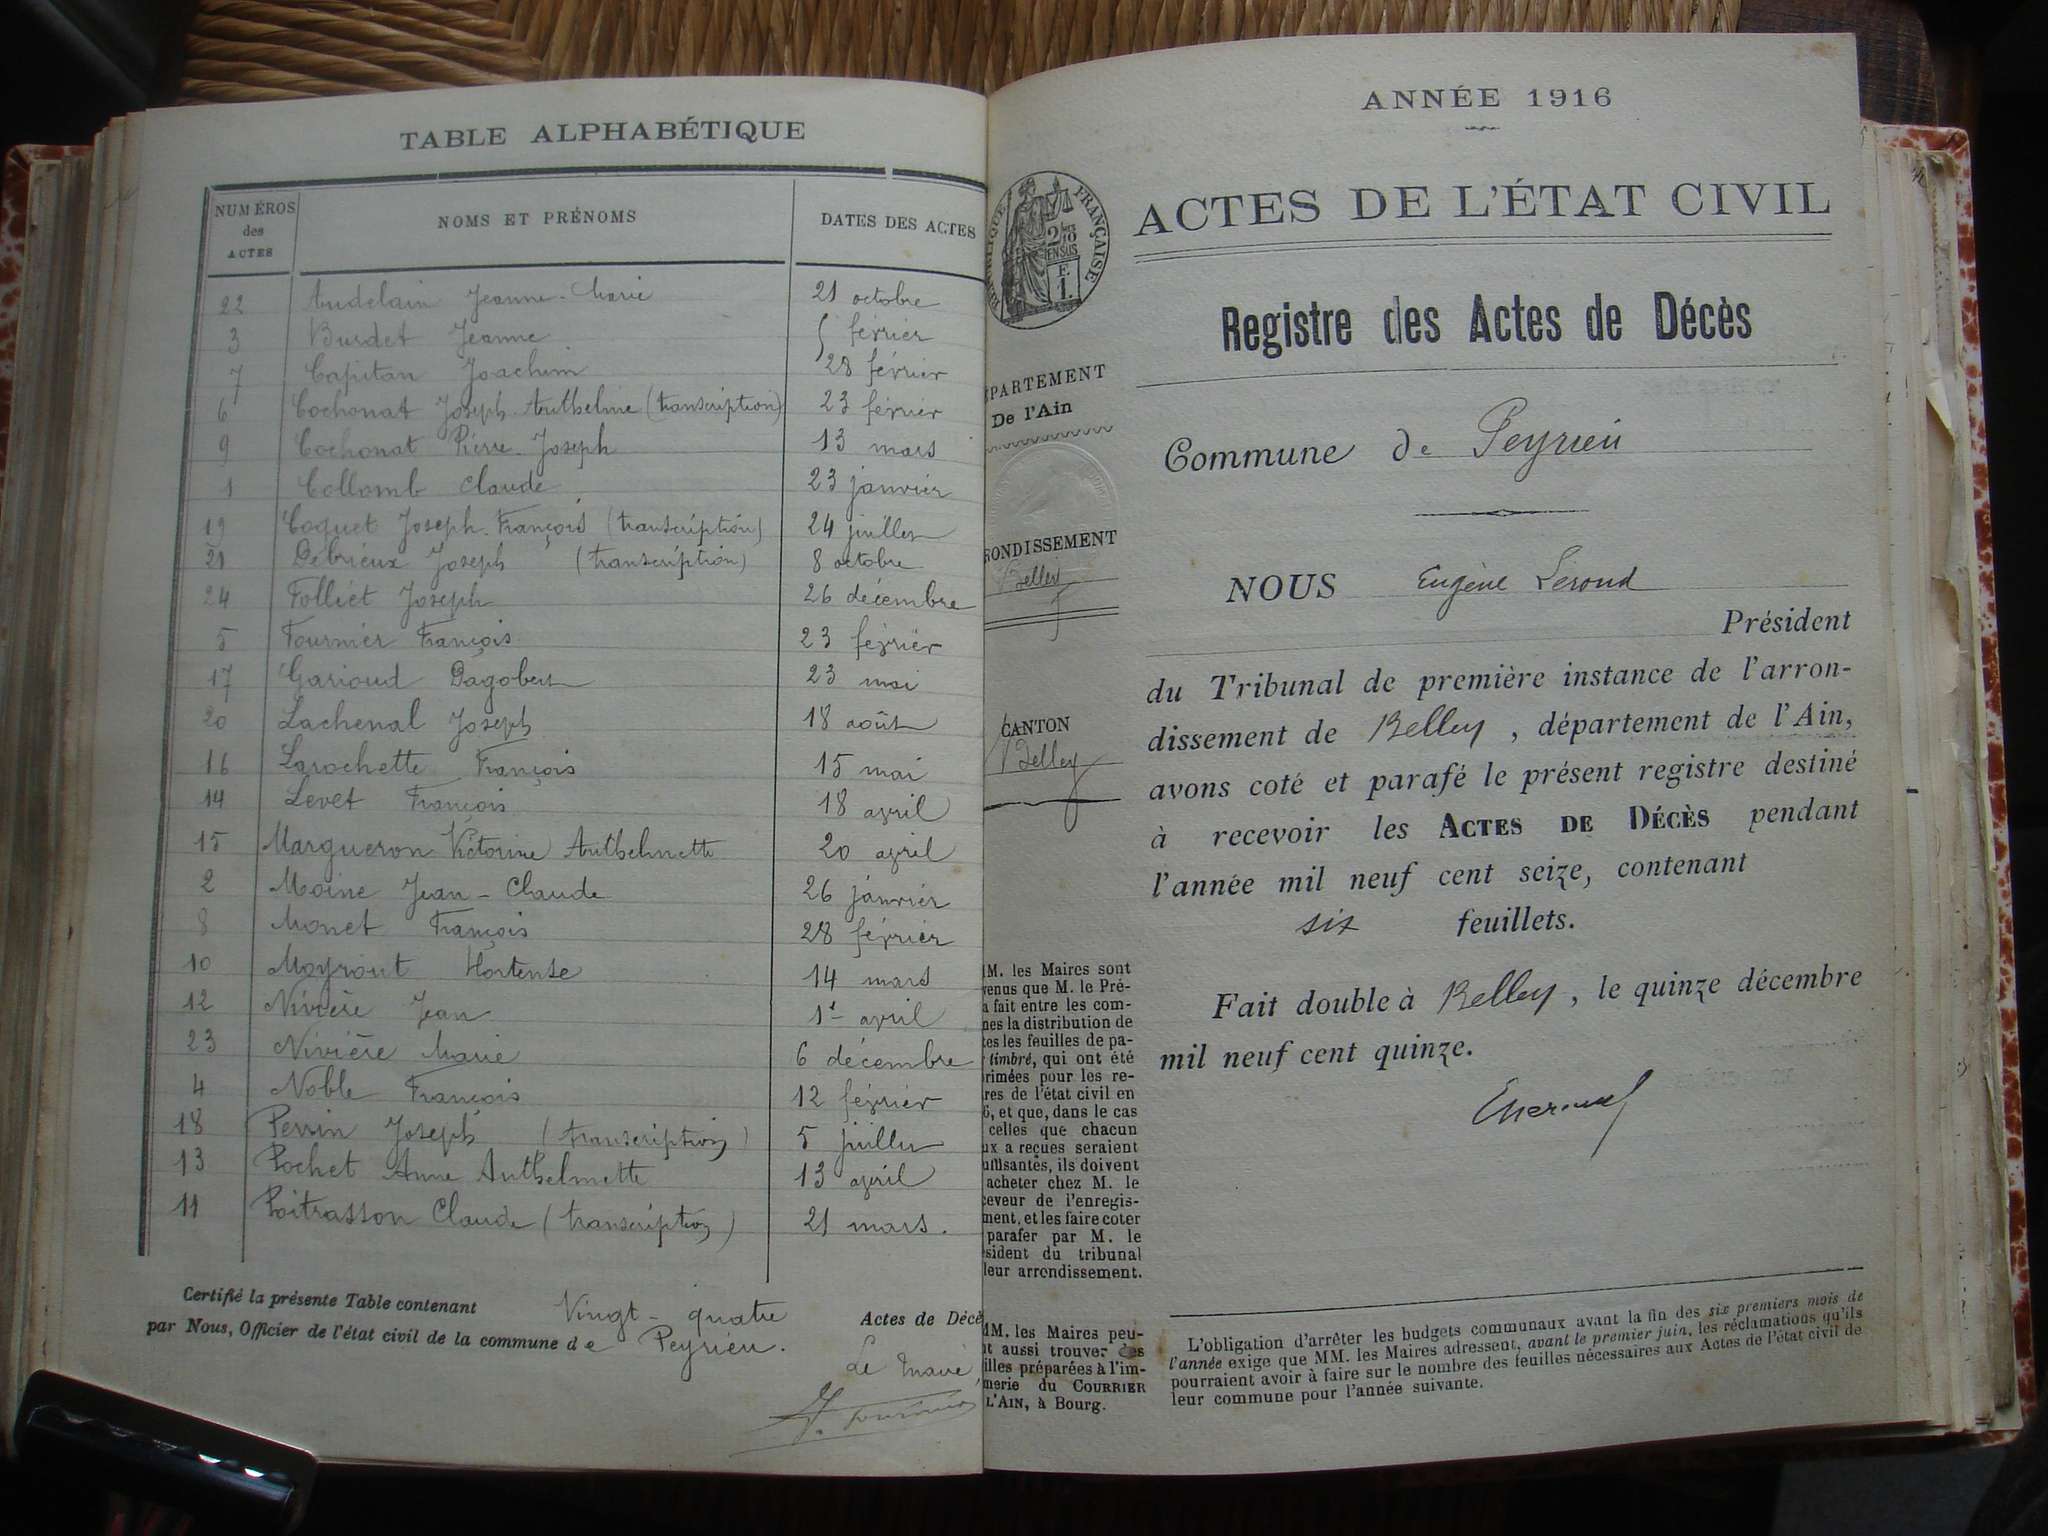 TABLE ALPHABÉTIQUE
NUMÉROS des ACTES NOMS ET PRÉNOMS DATES DES ACTES
22 Audelain Jeanne-Marie 21 octobre
3 Burdet Jeanne 5 février
7 Capitan Joachim 28 février
6 Cochonat Joseph Anthelme (transcription) 23 février
9 Cochonat Pierre Joseph 13 mars
1 Collomb Claude 23 janvier
19 Coquet Joseph François (transcription) 24 juillet
21 Debrieux Joseph (transcription) 8 octobre
24 Folliet Joseph 26 décembre
5 Fournier François 23 février
17 Garioud Dagobert 23 mai
20 Lachenal Joseph 18 août
16 Larochette François 15 mai
14 Levet François 18 avril
15 Margueron Victorine Anthelmette 20 avril
2 Moine Jean-Claude 26 janvier
8 Monet François 28 février
10 Moyrout Hortense 14 mars
12 Nivière Jean 1er avril
23 Nivière Marie 6 décembre
4 Noble François 12 février
18 Perrin Joseph (transcription) 5 juillet
13 Pochet Anne Anthelmette 13 avril
11 Poitrasson Claude (transcription) 21 mars.
Certifié la présente Table contenant Vingt-quatre Actes de Décè
par Nous, Officier de l'état civil de la commune de Peyrieu.
Le Maire,
J. Fournier
ANNÉE 1916
ACTES DE L'ÉTAT CIVIL
FRANÇAISE
Registre des Actes de Décès
PARTEMENT
De l'Ain
Commune de Peyrieu
RONDISSEMENT
Belley
CANTON
Belley
NOUS Eugène Leroud
Président
du Tribunal de première instance de l'arron-
dissement de Belley, département de l'Ain,
avons coté et parafé le présent registre destiné
à recevoir les ACTES DE DÉCÈS pendant
l'année mil neuf cent seize, contenant
six feuillets.
Fait double à Belley, le quinze décembre
mil neuf cent quinze.
MM. les Maires sont
venus que M. le Pré-
a fait entre les com-
nes la distribution de
es les feuilles de pa-
timbré, qui ont été
rimées pour les re-
res de l'état civil en
6, et que, dans le cas
celles que chacun
ux a reçues seraient
uffisantes, ils doivent
acheter chez M. le
ceveur de l'enregis-
ment, et les faire coter
parafer par M. le
sident du tribunal
leur arrondissement.
MM. les Maires peu-
t aussi trouver des
illes préparées à l'im-
merie du COURRIER
L'AIN, à Bourg.
L'obligation d'arrêter les budgets communaux avant la fin des six premiers mois de
l'année exige que MM. les Maires adressent, avant le premier juin, les réclamations qu'ils
pourraient avoir à faire sur le nombre des feuilles nécessaires aux Actes de l'état civil de
leur commune pour l'année suivante.